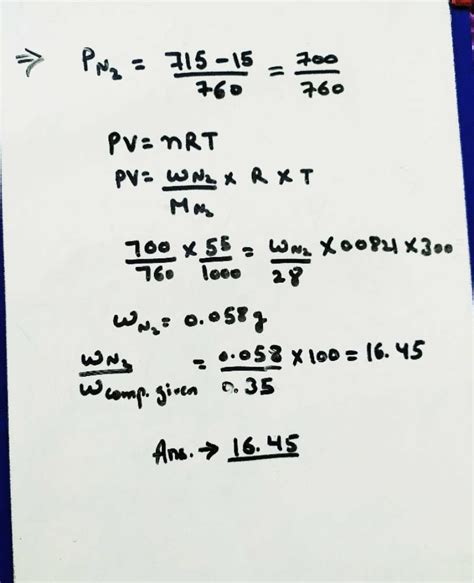 ⇒ P_N₂ = 715-15/760 = 700/760
PV = nRT
PV = W_N₂/M_N₂ × R × T
700/760 × 55/1000 = W_N₂/28 × 0.0821 × 300
W_N₂ = 0.058g
W_N₂/W comp. given = 0.058/0.35 × 100 = 16.45
Ans. → 16.45